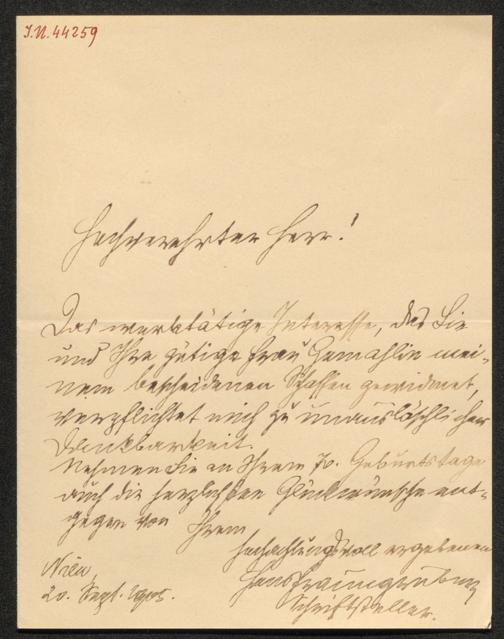 I.N. 44259
Hochverehrter Herr!
Das werktätige Interesse, das Sie
und Ihre gütige Frau Gemahlin mei-
nem bescheidenen Schaffen gewidmet,
verpflichtet mich zu unauslöschlicher
Dankbarkeit.
Nehmen Sie zu Ihrem 70. Geburtstage
auch die herzlichsten Glückwünsche ent-
gegen von Ihrem
hochachtungsvoll ergebenen
Wien, Hans Fraungruber
20. Sept. 1905. Schriftsteller.